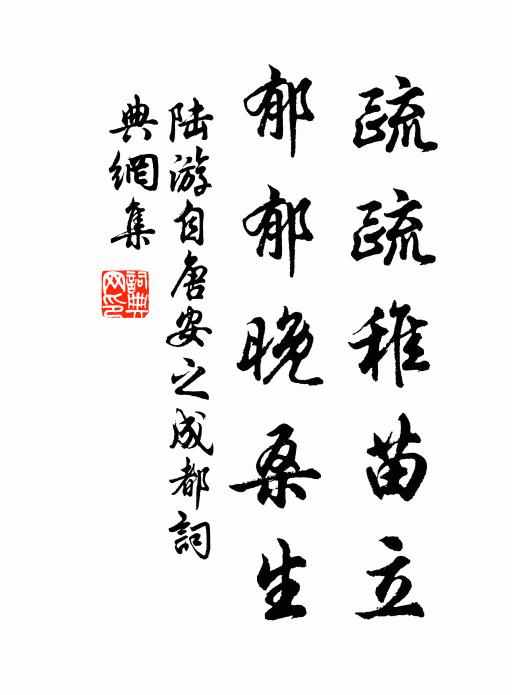 疏疏稚苗立
郁郁晚桑生
陆游自唐安之成都詞
典網集
詞典
网印